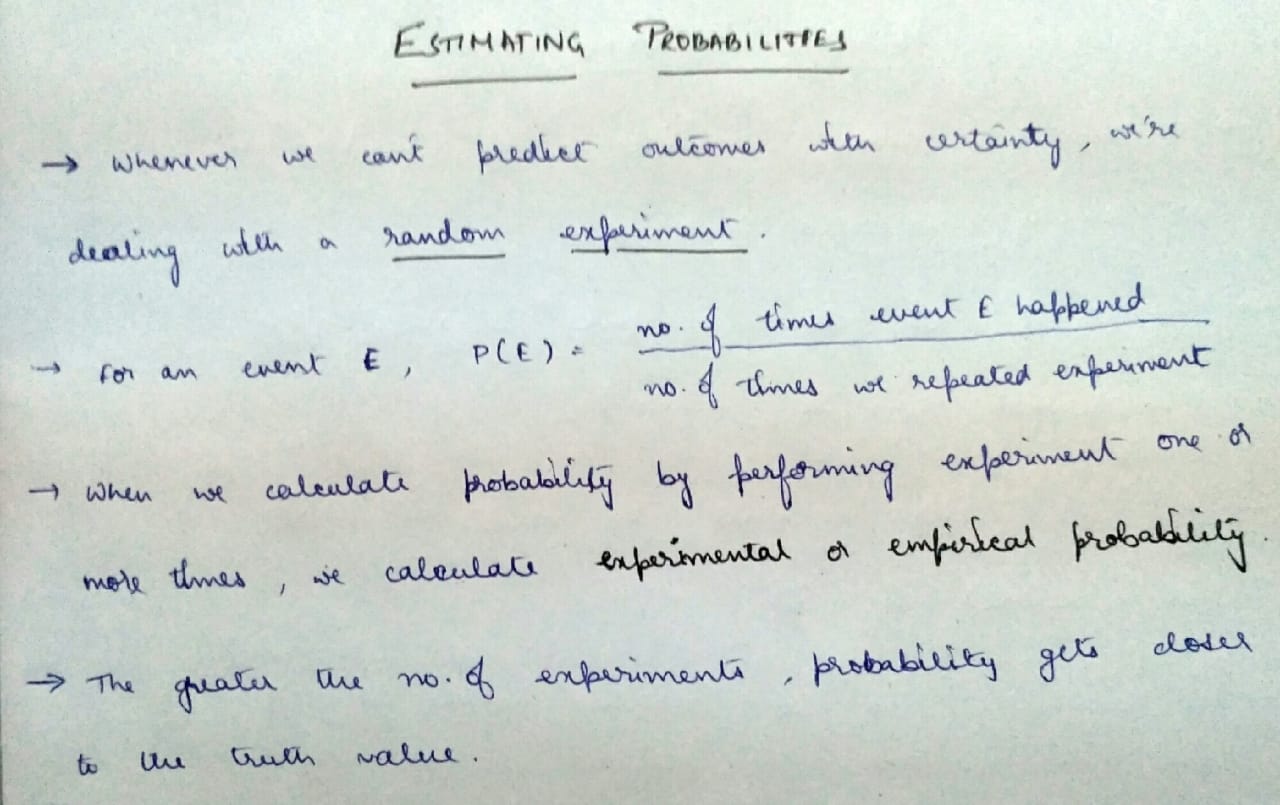 ESTIMATING PROBABILITIES
→ Whenever we can't predict outcomes with certainty, we're
dealing with a random experiment.
→ For an event E, P(E) = no. of times event E happened
no. of times we repeated experiment
→ When we calculate probability by performing experiment one or
more times, we calculate experimental or empirical probability.
→ The greater the no. of experiments, probability gets closer
to the truth value.